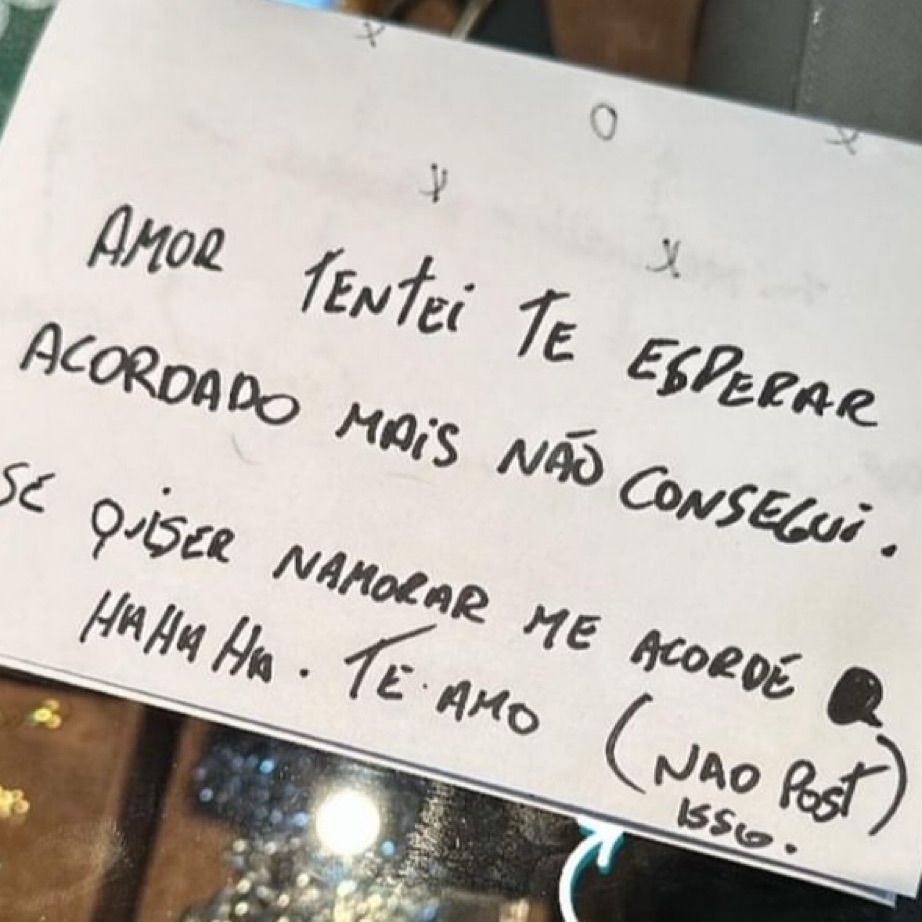 X
O
X
X
X
AMOR TENTEI TE ESPERAR
ACORDADO MAIS NÃO CONSEGUI.
SE QUISER NAMORAR ME ACORDÉ
HAHAHA. TE AMO (NAO POST
ISSO.)